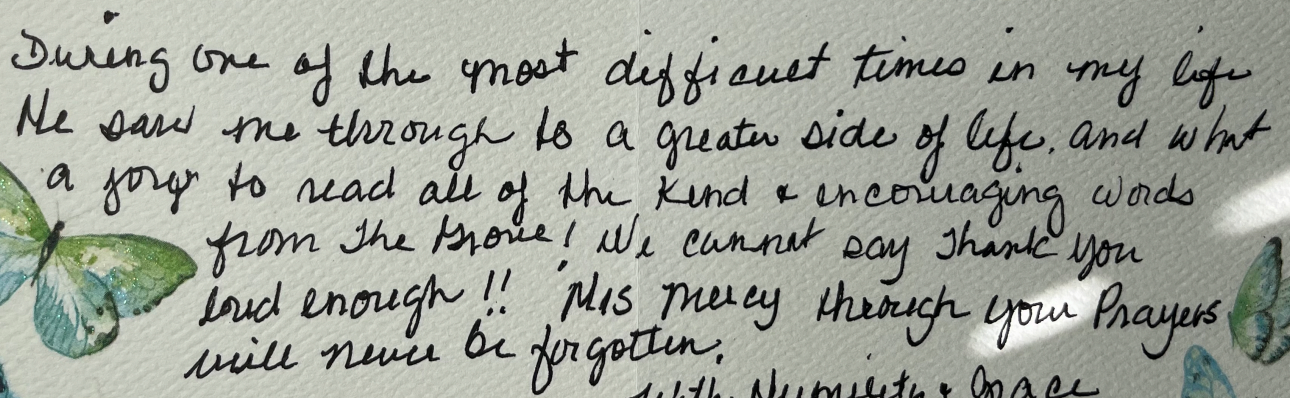 During one of the most difficult times in my life
He saw me through to a greater side of life, and what
a joy to read all of the kind & encouraging words
from The Grove! We cannot say Thank You
loud enough!! His mercy through your Prayers
will never be forgotten.
with Humility & Grace